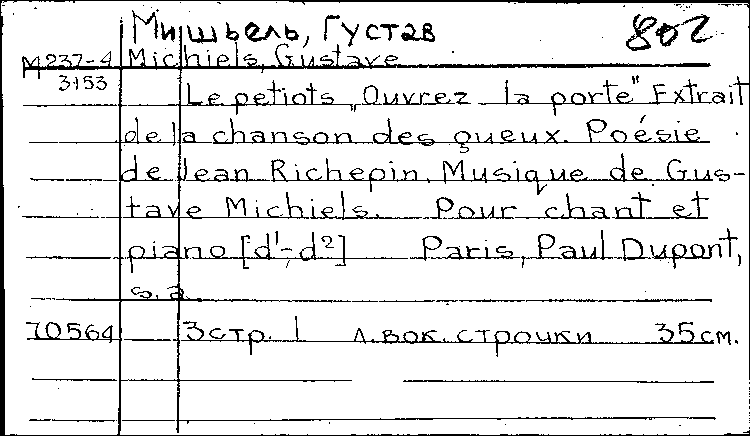 Мишьель, Густав 802
М 237-4 Michiels, Gustave
3153
Le petiots „Ouvrez la porte" Extrait
de la chanson des gueux. Poésie
de Jean Richepin. Musique de Gus-
tave Michiels. Pour chant et
piano [d¹-d²] Paris, Paul Dupont,
s.a.
70564 3 стр. 1 л. вок. строчки 35 см.